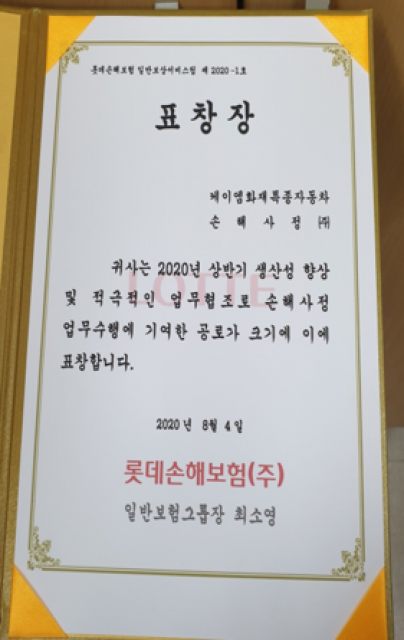 롯데손해보험 일반보상서비스팀 제 2020-1호
표창장
케이엠화재특종자동차
손해사정(주)
귀사는 2020년 상반기 생산성 향상
및 적극적인 업무협조로 손해사정
업무수행에 기여한 공로가 크기에 이에
표창합니다.
LOTTE
2020년 8월 4일
롯데손해보험(주)
일반보험그룹장 최소영